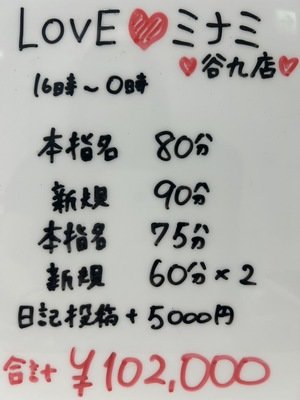 LOVE♥ミナミ
♥谷九店♥
16時～0時
本指名 80分
新規 90分
本指名 75分
新規 60分×2
日記投稿+5000円
合計 ¥102,000